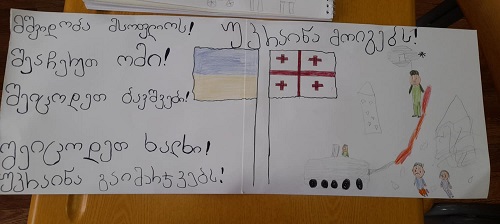 მშვიდობა მსოფლიოს!
უკრაინა მოიგებს!
შეაჩერეთ ომი!
შეიცოდეთ ბავშვები!
შეიცოდეთ ხალხი!
უკრაინა გაიმარჯვებს!